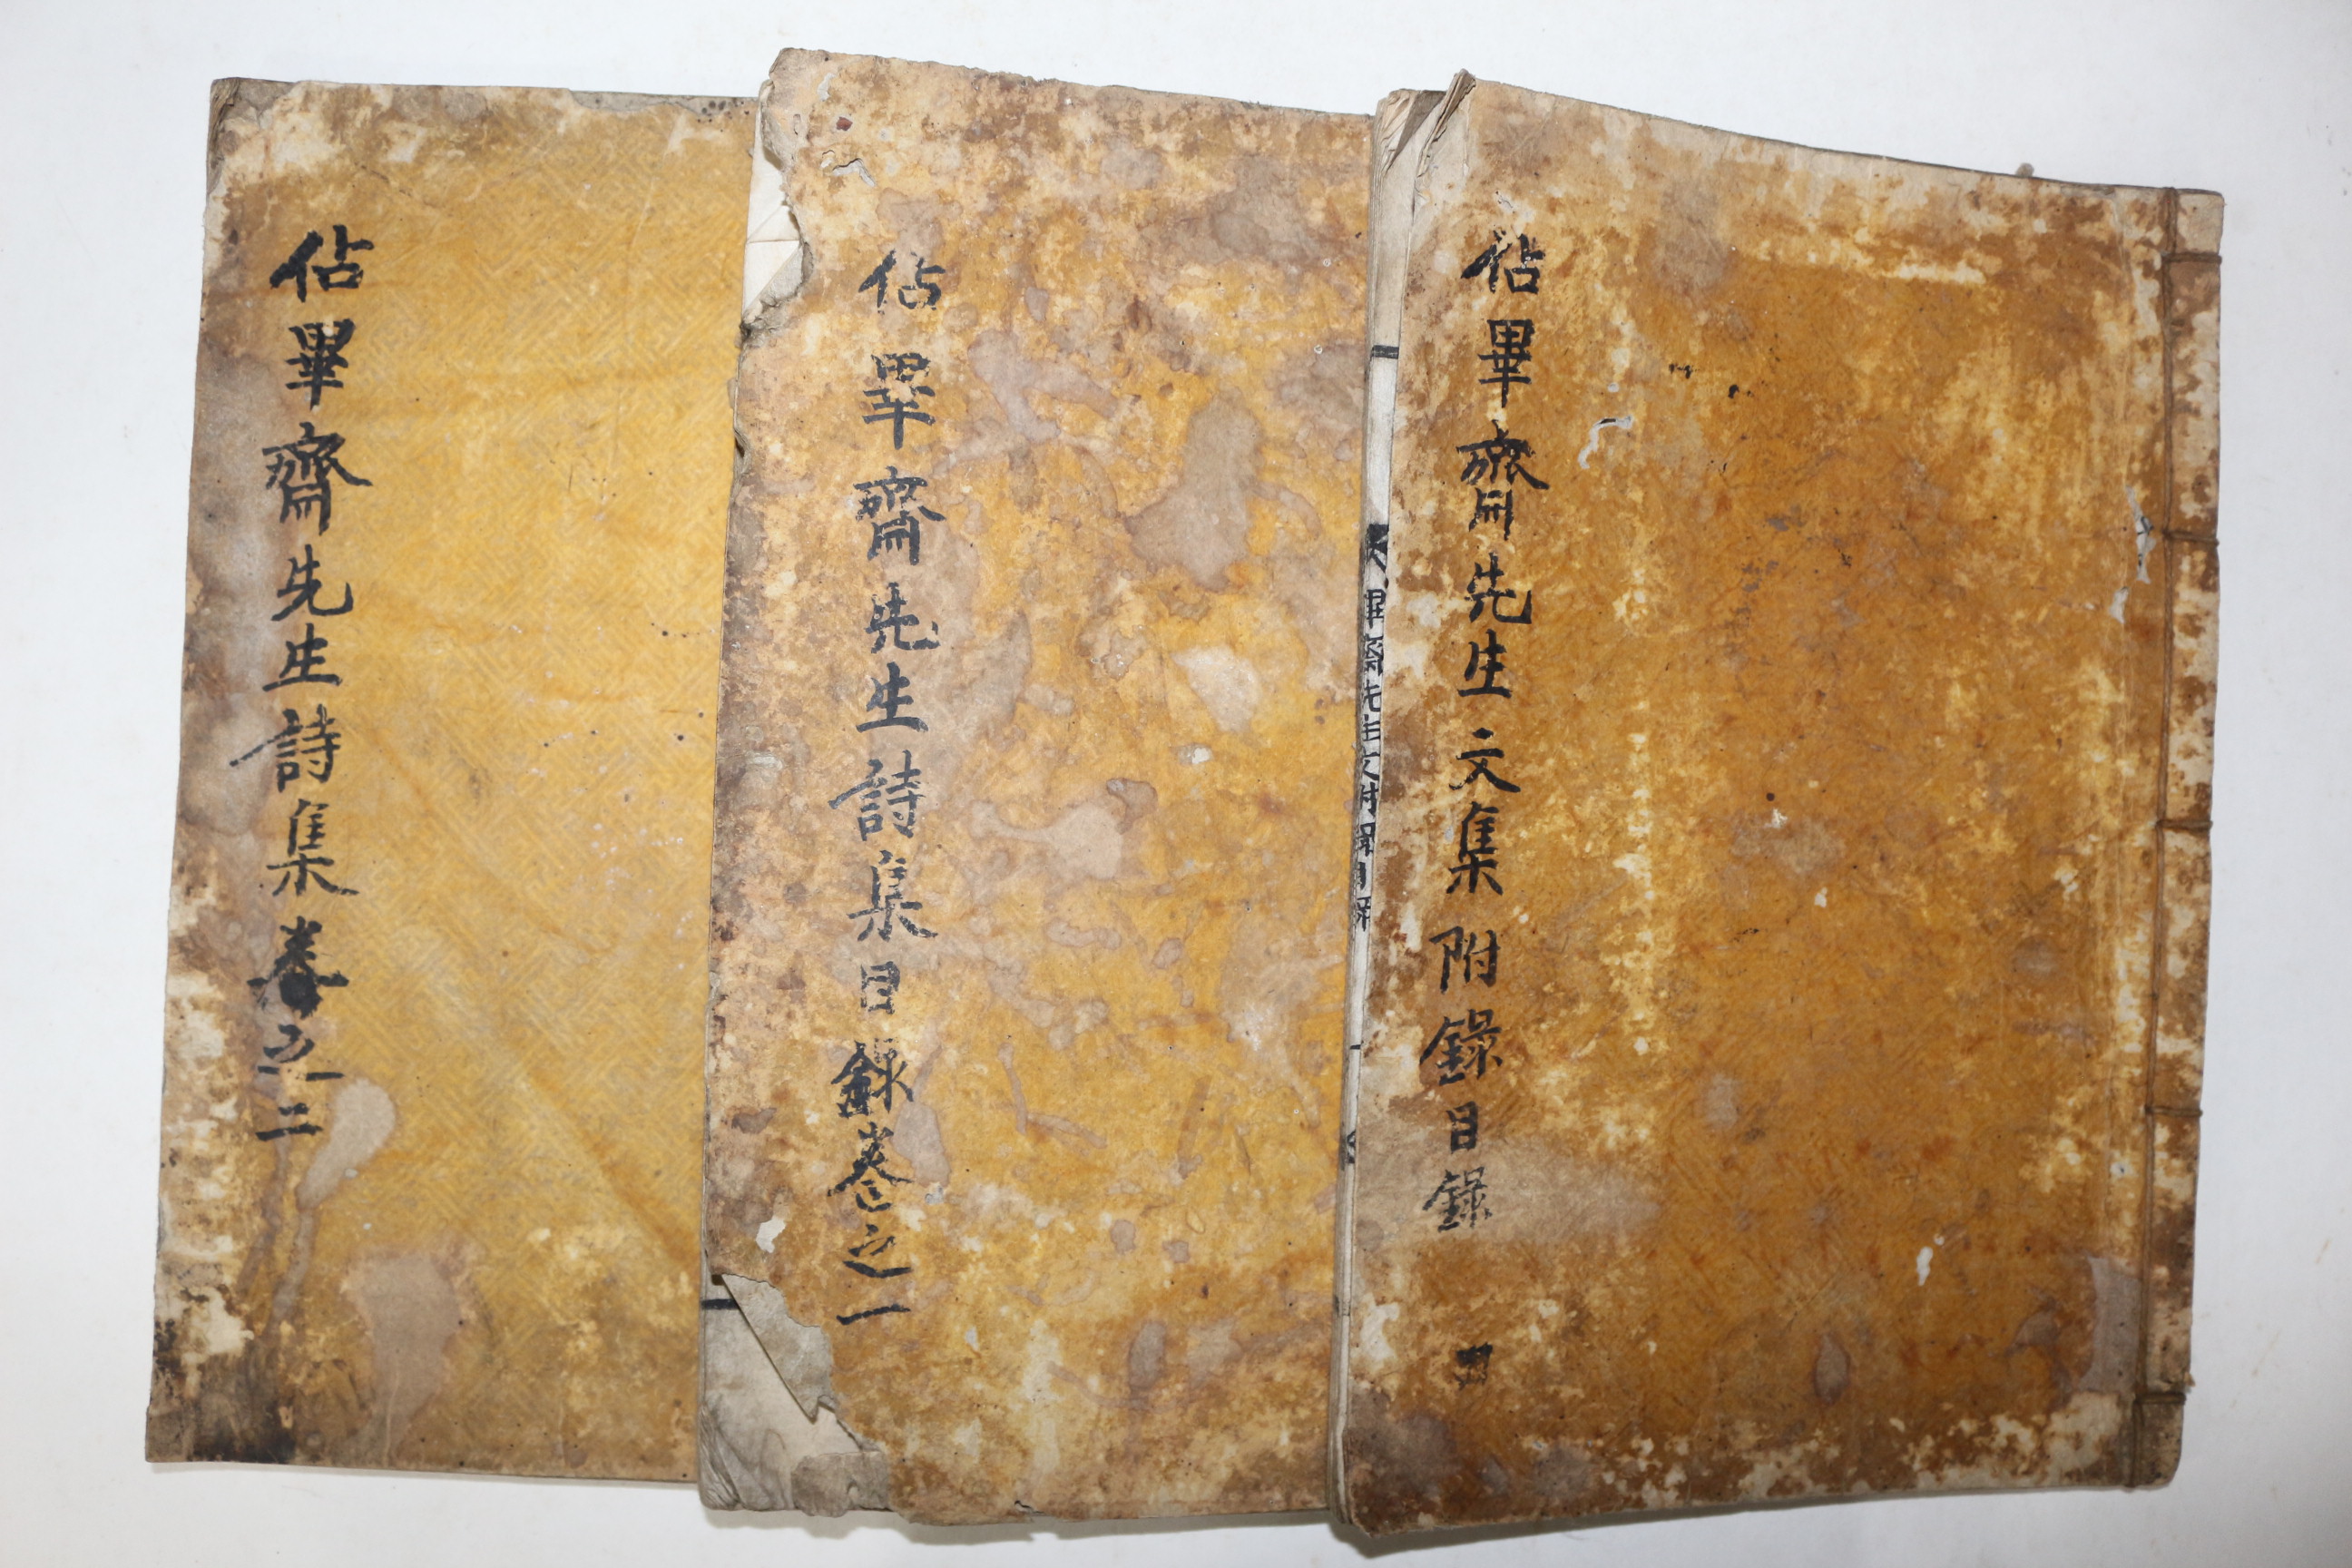 佔畢齋先生文集附錄目錄
畢齋先生文附錄目錄
佔畢齋先生詩集目錄卷之一
佔畢齋先生詩集卷之二